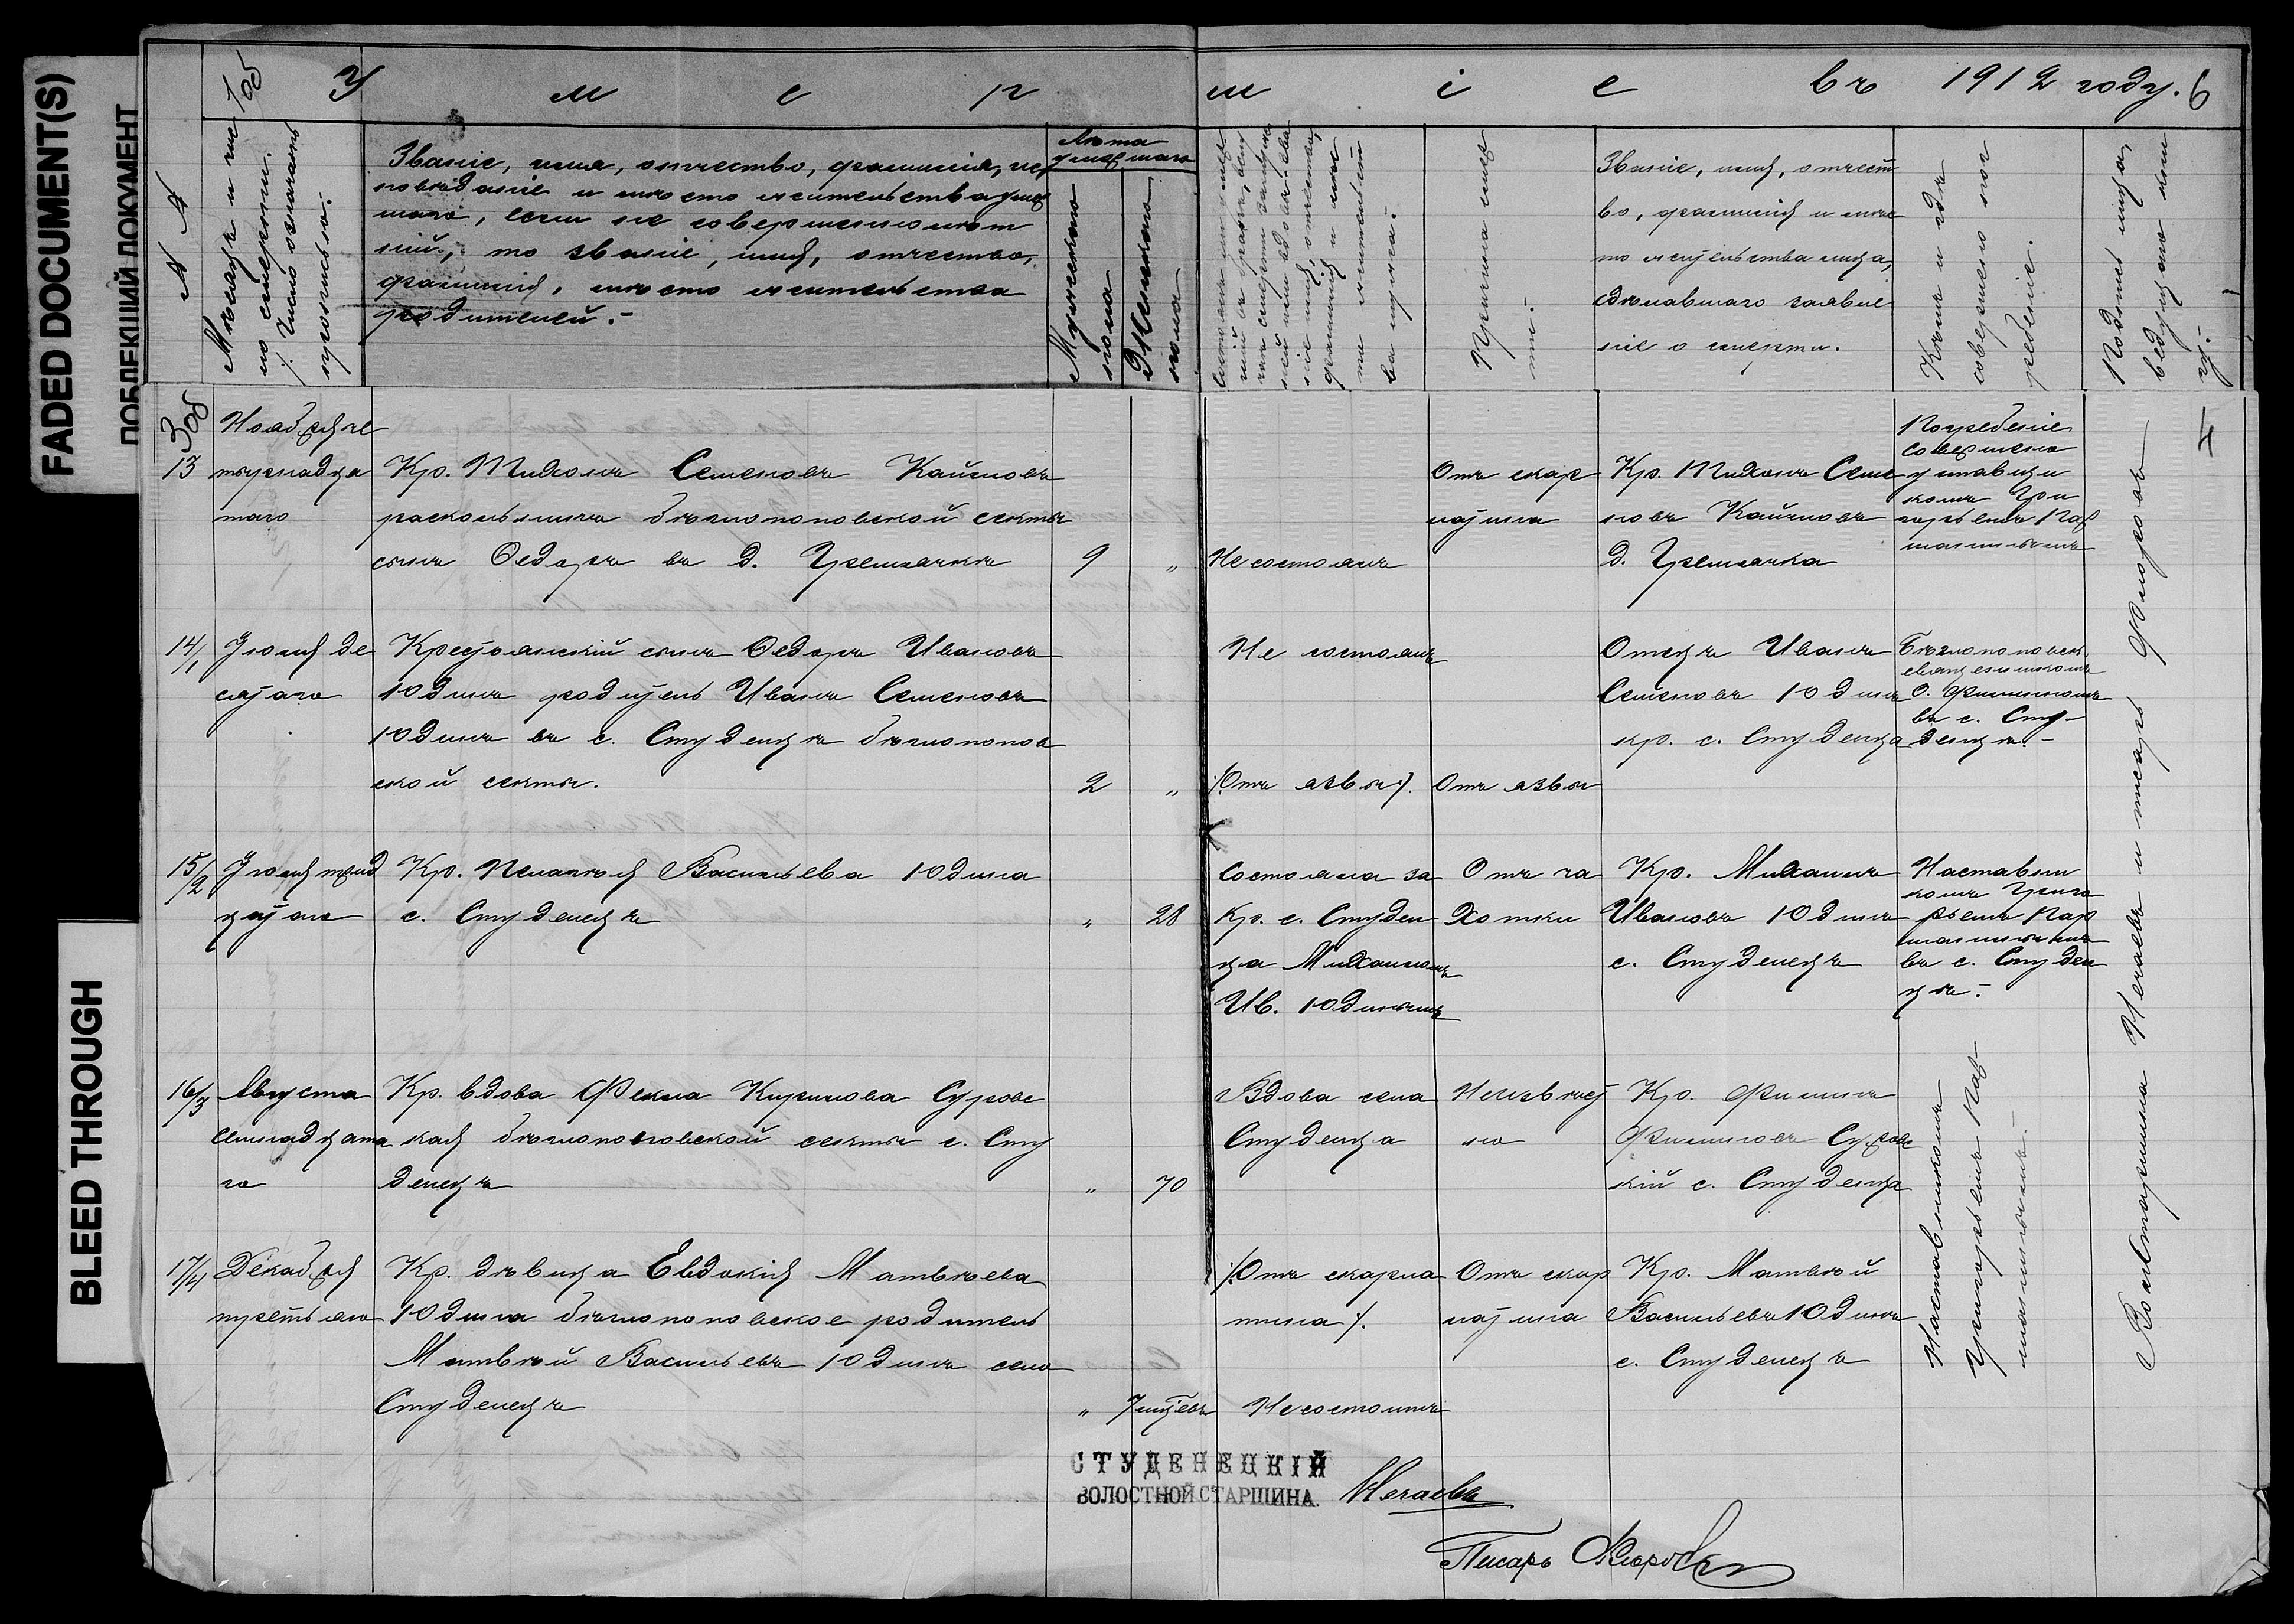 FADED DOCUMENT(S)
ПОБЛЕКШИЙ ДОКУМЕНТ
BLEED THROUGH
Умершіе въ 1912 году. 6
№ №
Мѣсяцъ и чис
ло смерти.
/. Число означать
прописью.
Званіе, имя, отчество, фамилія, ис
повѣданіе и мѣсто жительства умер
шаго, если не совершеннолѣт
ній, то званіе, имя, отчество,
фамилія, мѣсто жительства
родителей.-
Лѣта
умершаго
Мужского
пола
Женскаго
пола
Причина смер
ти.
Званіе, имя, отчест
во, фамилія и мѣс
то жительства лица,
сдѣлавшаго заявле
ніе о смерти.
Кѣмъ и гдѣ
совершено пог
ребеніе.
Подпись лица,
ведущаго кни
гу.-
13
Ноября че
тырнадца
таго
Кр. Тихонъ Семеновъ Каймовъ
раскольникъ бѣглопоповской секты
сынъ Ѳедоръ въ д. Гремячкѣ
9
"
Не состоялъ
Отъ скар
латина
Кр. Тихонъ Семе
новъ Каймовъ
д. Гремячка
Погребеніе
совершено
уставщи
комъ Гри
горьемъ Пар
шинымъ
4
14/1
Іюня де
сятаго
Крестьянскій сынъ Ѳедоръ Ивановъ
Юдинъ родитель Иванъ Семеновъ
Юдинъ въ с. Студенцѣ бѣглопопов
ской секты.
2
"
Не состоялъ
/:Отъ язвы:/.
Отъ язвы
Отецъ Иванъ
Семеновъ Юдинъ
кр. с. Студенца
Бѣглопоповск.
священникомъ
О. Филиппомъ
въ с. Сту-
денцѣ.-
15/2
Іюня трид
цатаго
Кр. Пелагѣя Васильева Юдина
с. Студенецъ
"
28
Состояла за
Кр. с. Студен
ца Михаиломъ
Ив. Юдинымъ
Отъ ча
хотки
Кр. Михаилъ
Ивановъ Юдинъ
с. Студенецъ
Наставни
комъ Григо
рьемъ Пар
шинымъ
въ с. Студен
цѣ.-
16/3
Августа
семнадцата
го
Кр. вдова Фекла Кирилова Суровс
кая бѣглопоповской секты с. Сту
денецъ
"
70
Вдова села
Студенца
Неизвѣст
но
Кр. Филиппъ
Филипповъ Суровс
кій с. Студенца
17/4
Декабря
третьяго
Кр. дѣвица Евдокія Матвѣева
Юдина бѣглопоповское родитель
Матвѣй Васильевъ Юдинъ село
Студенецъ
"
7 мѣсяцевъ
/:Отъ скарла
тина:/.
Несостоитъ
Отъ скар
латина
Кр. Матвѣй
Васильевъ Юдинъ
с. Студенецъ
Наставникомъ
Григорьемъ Пар
шинымъ.-
Волстаршина Нечаевъ и писарь Флоровъ
СТУДЕНЕЦКІЙ
ВОЛОСТНОЙ СТАРШИНА. Нечаевъ
Писарь Флоровъ